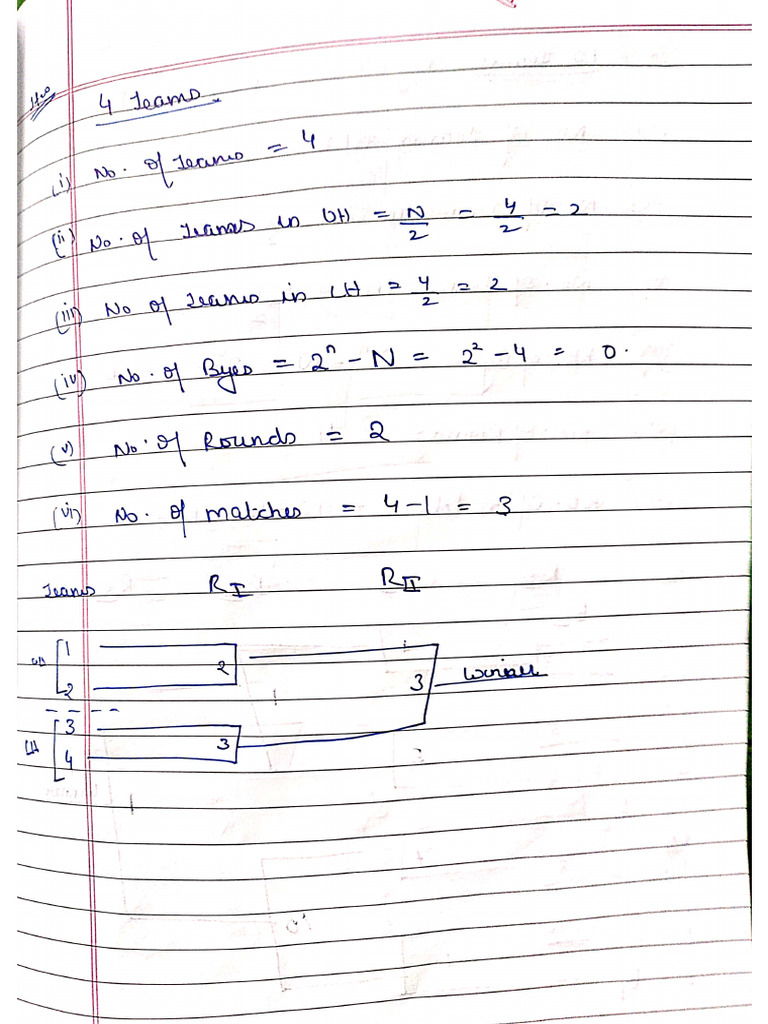 4 Teams
(i) No. of Teams = 4
(ii) No. of Teams in UH = N/2 = 4/2 = 2
(iii) No of Teams in LH = 4/2 = 2
(iv) No. of Byes = 2ⁿ - N = 2² - 4 = 0.
(v) No. of Rounds = 2
(vi) No. of matches = 4-1 = 3
Teams R I R II
1
UH 2
2 3
3
LH 3
4